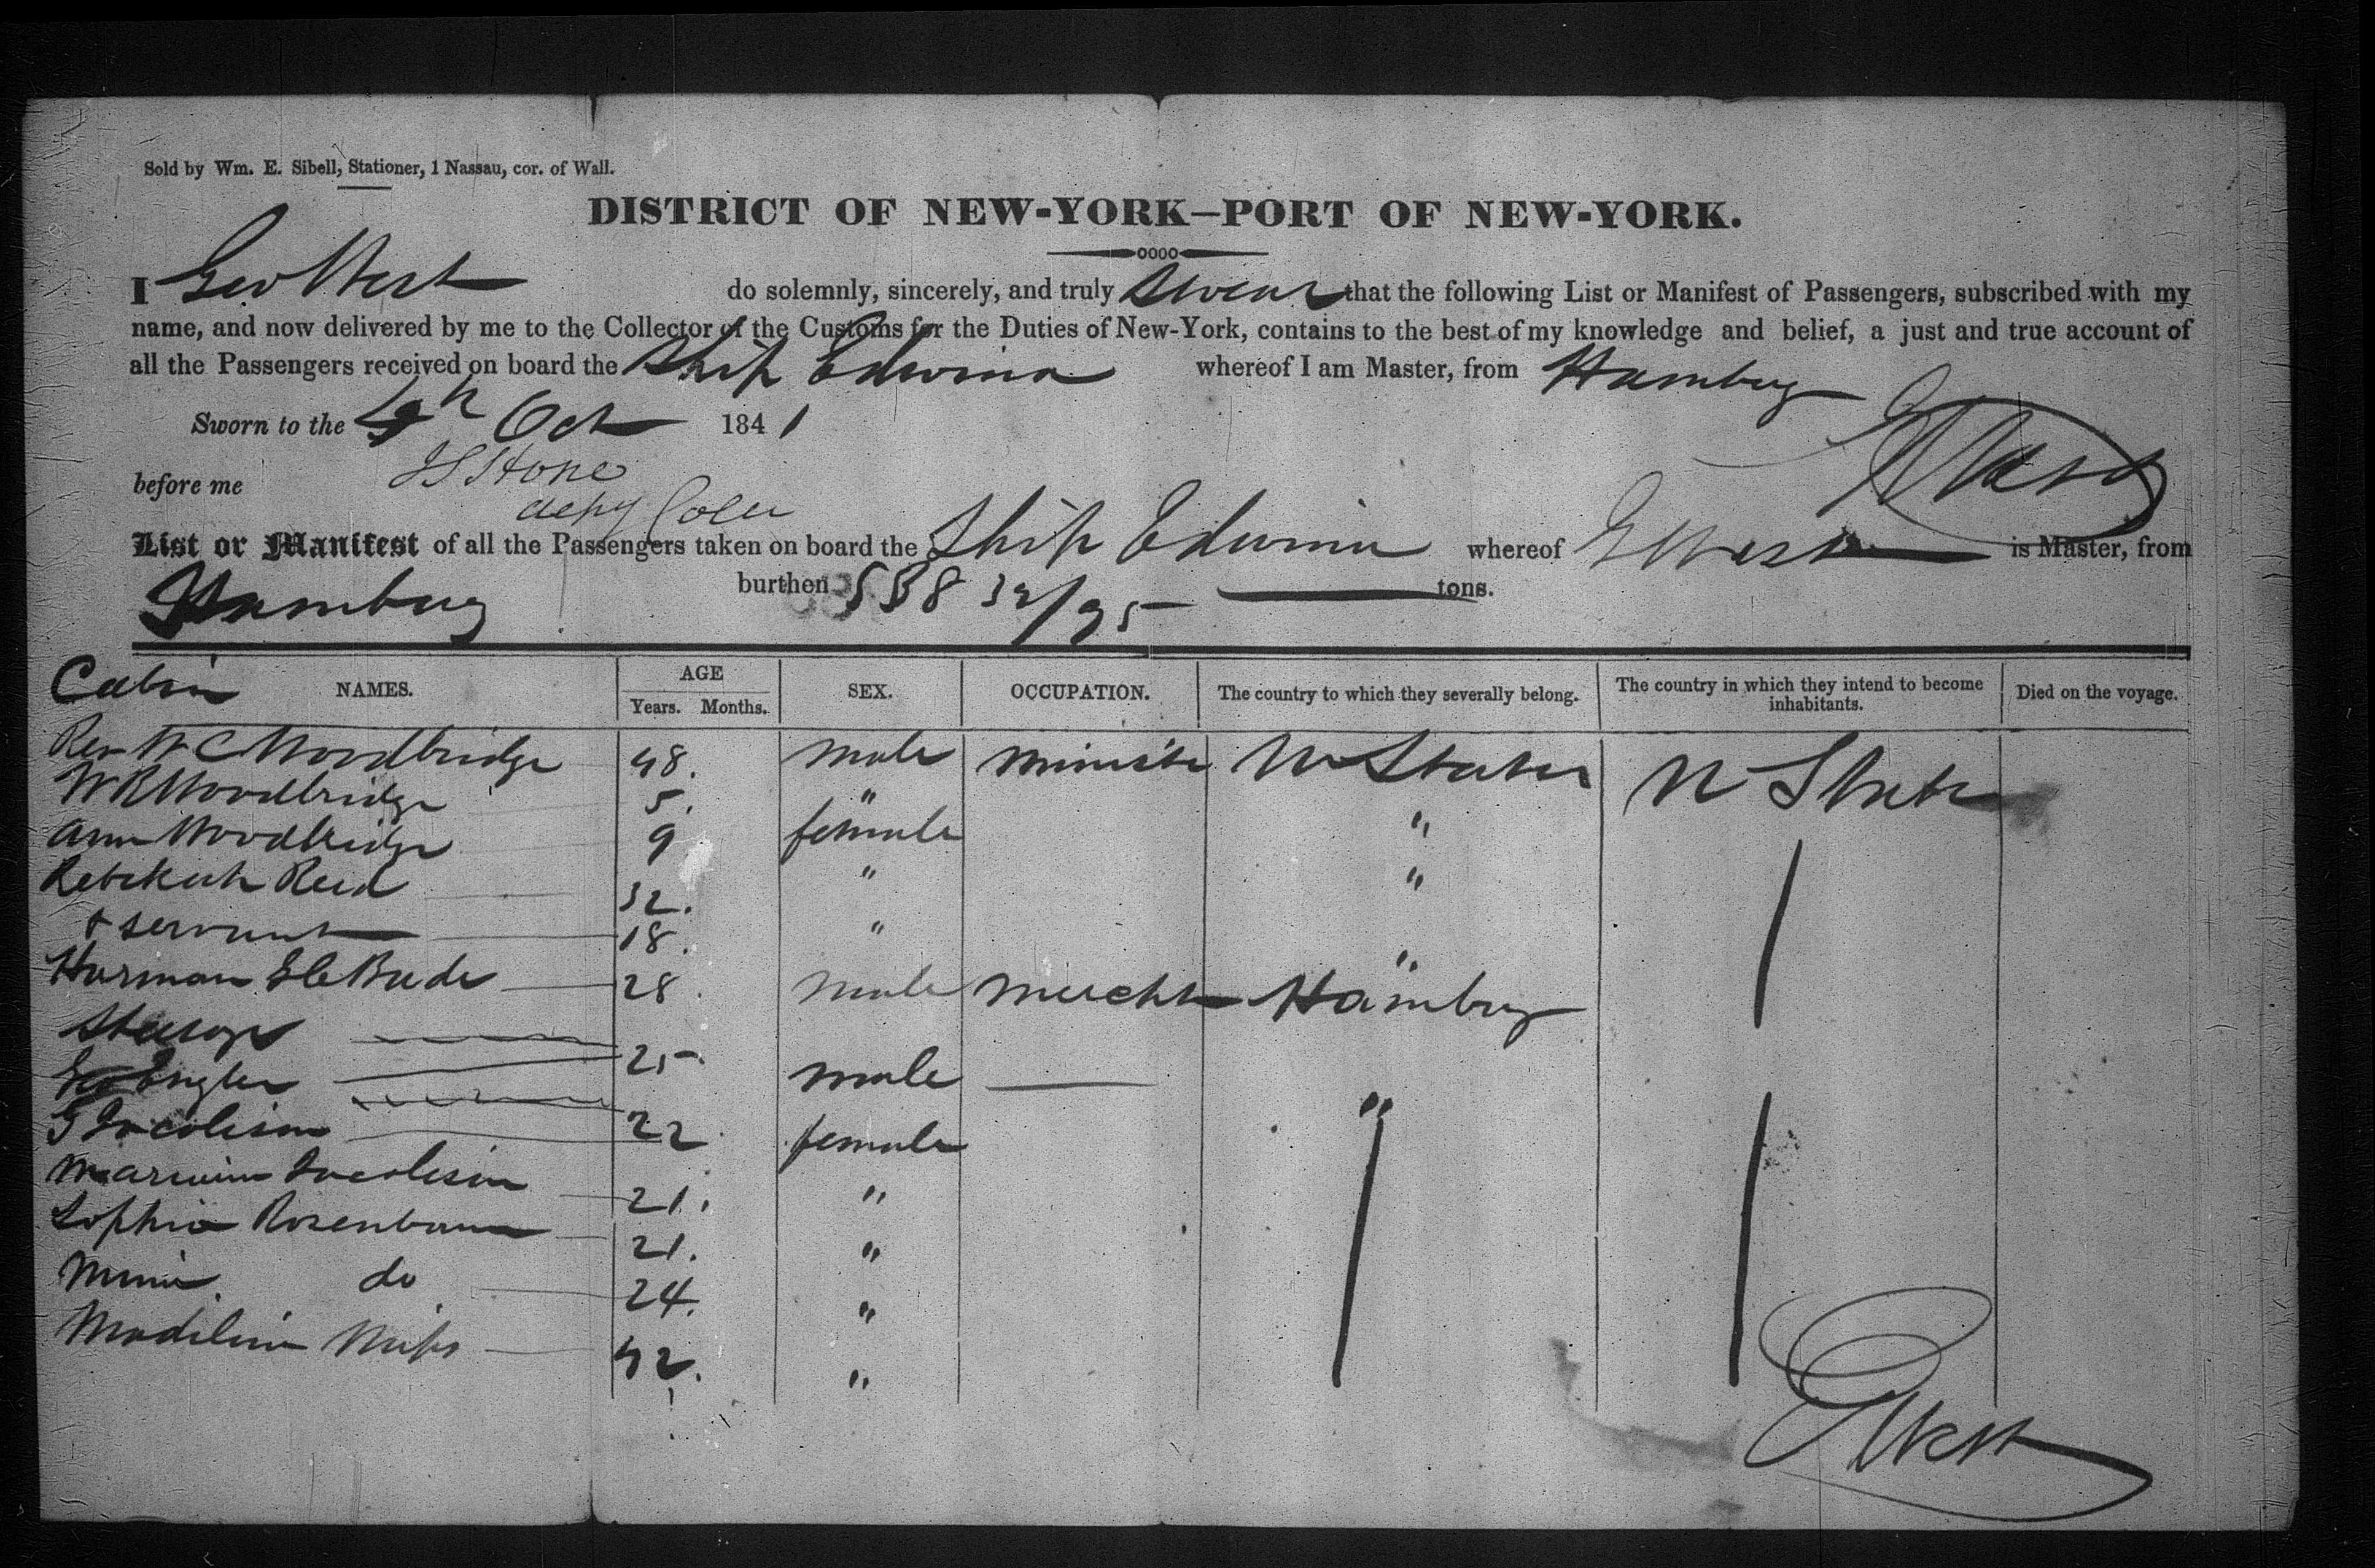 Sold by Wm. E. Sibell, Stationer, 1 Nassau, cor. of Wall.
DISTRICT OF NEW-YORK—PORT OF NEW-YORK.
I Geo West do solemnly, sincerely, and truly swear that the following List or Manifest of Passengers, subscribed with my
name, and now delivered by me to the Collector of the Customs for the Duties of New-York, contains to the best of my knowledge and belief, a just and true account of
all the Passengers received on board the Ship Edwina whereof I am Master, from Hamburg
Sworn to the Oct 1841
G West
before me J S Stone
depy
List or Manifest of all the Passengers taken on board the Ship Edwina whereof G West is Master, from
Hamburg burthen tons.
Cabin NAMES. AGE Years. Months. SEX. OCCUPATION. The country to which they severally belong. The country in which they intend to become inhabitants. Died on the voyage.
Rev W C Woodbridge 48. male U States U State
W R Woodbridge 5. "
Ann Woodbridge 9 female "
Rebekah Reed 32. " "
+ servant 18. " "
Harman 28. male Mercht Hamburg
Steerage
Geo Engler 25 male "
22 female
21. "
Sophia Rosenbaum 21. "
Mina do 24. "
42. "
G West